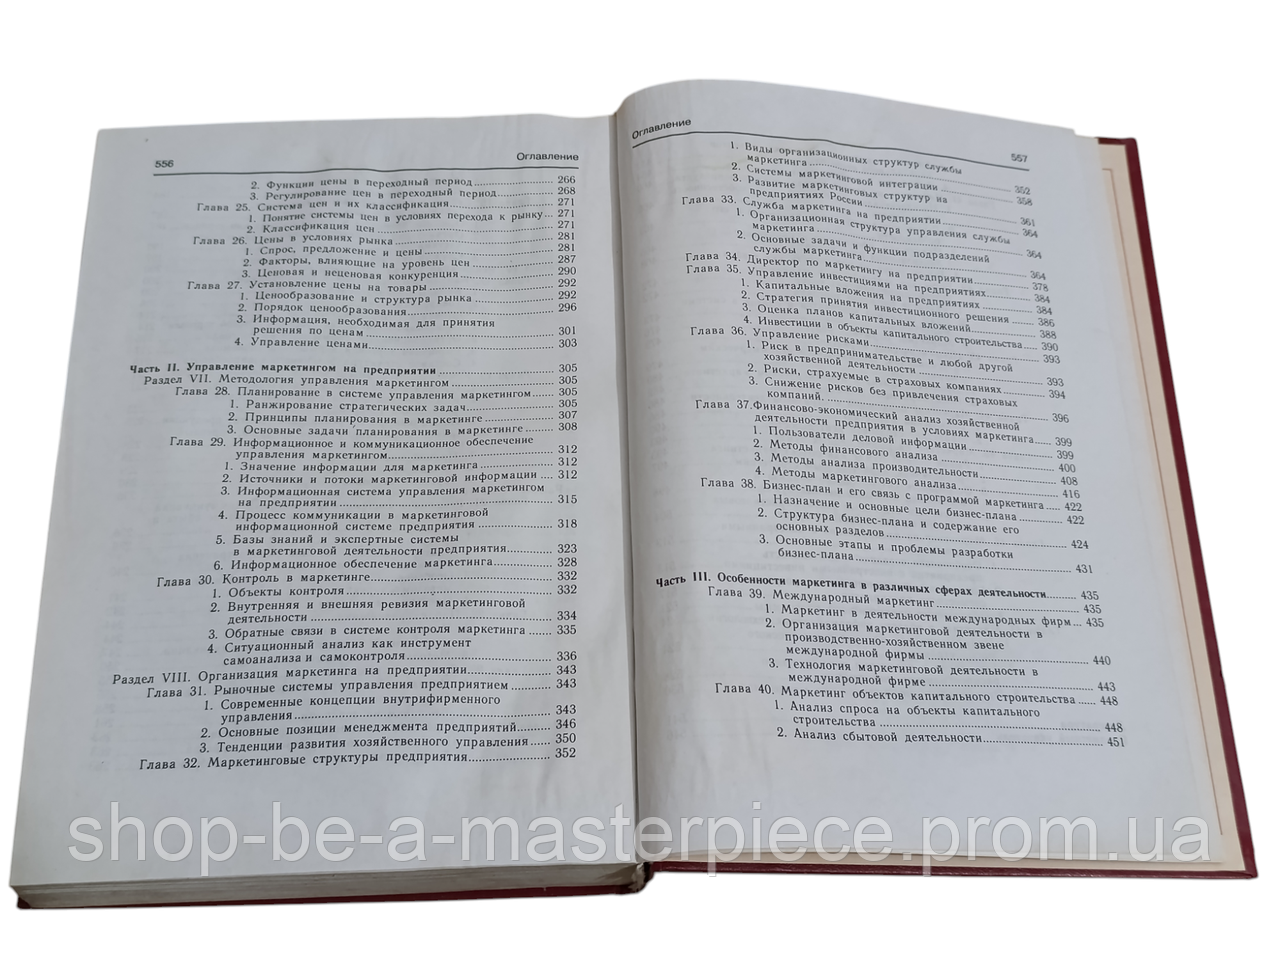 556 Оглавление
2. Функции цены в переходный период 266
3. Регулирование цен в переходный период 268
Глава 25. Система цен и их классификация 271
1. Понятие системы цен в условиях перехода к рынку 271
2. Классификация цен 271
Глава 26. Цены в условиях рынка 281
1. Спрос, предложение и цены 281
2. Факторы, влияющие на уровень цен 287
3. Ценовая и неценовая конкуренция 290
Глава 27. Установление цены на товары 292
1. Ценообразование и структура рынка 292
2. Порядок ценообразования 296
3. Информация, необходимая для принятия
решения по ценам 301
4. Управление ценами 303
Часть II. Управление маркетингом на предприятии 305
Раздел VII. Методология управления маркетингом 305
Глава 28. Планирование в системе управления маркетингом 305
1. Ранжирование стратегических задач 305
2. Принципы планирования в маркетинге 307
3. Основные задачи планирования в маркетинге 308
Глава 29. Информационное и коммуникационное обеспечение
управления маркетингом 312
1. Значение информации для маркетинга 312
2. Источники и потоки маркетинговой информации 312
3. Информационная система управления маркетингом
на предприятии 315
4. Процесс коммуникации в маркетинговой
информационной системе предприятия 318
5. Базы знаний и экспертные системы
в маркетинговой деятельности предприятия 323
6. Информационное обеспечение маркетинга 328
Глава 30. Контроль в маркетинге 332
1. Объекты контроля 332
2. Внутренняя и внешняя ревизия маркетинговой
деятельности 334
3. Обратные связи в системе контроля маркетинга 335
4. Ситуационный анализ как инструмент
самоанализа и самоконтроля 336
Раздел VIII. Организация маркетинга на предприятии 343
Глава 31. Рыночные системы управления предприятием 343
1. Современные концепции внутрифирменного
управления 343
2. Основные позиции менеджмента предприятий 346
3. Тенденции развития хозяйственного управления 350
Глава 32. Маркетинговые структуры предприятия 352
Оглавление 557
1. Виды организационных структур службы
маркетинга 352
2. Системы маркетинговой интеграции 358
3. Развитие маркетинговых структур на
предприятиях России 361
Глава 33. Служба маркетинга на предприятии 364
1. Организационная структура управления службы
маркетинга 364
2. Основные задачи и функции подразделений
службы маркетинга 364
Глава 34. Директор по маркетингу на предприятии 378
Глава 35. Управление инвестициями на предприятиях 384
1. Капитальные вложения на предприятиях 384
2. Стратегия принятия инвестиционного решения 386
3. Оценка планов капитальных вложений 388
4. Инвестиции в объекты капитального строительства 390
Глава 36. Управление рисками 393
1. Риск в предпринимательстве и любой другой
хозяйственной деятельности 393
2. Риски, страхуемые в страховых компаниях 394
3. Снижение рисков без привлечения страховых
компаний. 396
Глава 37.Финансово-экономический анализ хозяйственной
деятельности предприятия в условиях маркетинга 399
1. Пользователи деловой информации 399
2. Методы финансового анализа 400
3. Методы анализа производительности 408
4. Методы маркетингового анализа 416
Глава 38. Бизнес-план и его связь с программой маркетинга 422
1. Назначение и основные цели бизнес-плана 422
2. Структура бизнес-плана и содержание его
основных разделов 424
3. Основные этапы и проблемы разработки
бизнес-плана 431
Часть III. Особенности маркетинга в различных сферах деятельности 435
Глава 39. Международный маркетинг 435
1. Маркетинг в деятельности международных фирм 435
2. Организация маркетинговой деятельности в
производственно-хозяйственном звене
международной фирмы 440
3. Технология маркетинговой деятельности в
международной фирме 443
Глава 40. Маркетинг объектов капитального строительства 448
1. Анализ спроса на объекты капитального
строительства 448
2. Анализ сбытовой деятельности 451
shop-be-a-masterpiece.prom.ua